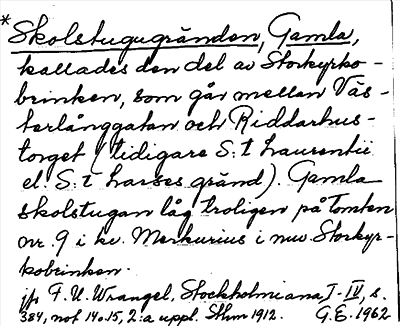 * Skolstugugränden, Gamla,
kallades den del av Storkyrko-
brinken, som går mellan Väs-
terlånggatan och Riddarhus-
torget (tidigare S:t Laurentii
el. S:t Larses gränd). Gamla
skolstugan låg troligen på tomten
nr. 9 i kv. Merkurius i nuv. Storkyr-
kobrinken.
jfr F. U. Wrangel, Stockholmiana I-IV, s.
384, not 14 o. 15, 2:a uppl. Sthm 1912. G.E. 1962